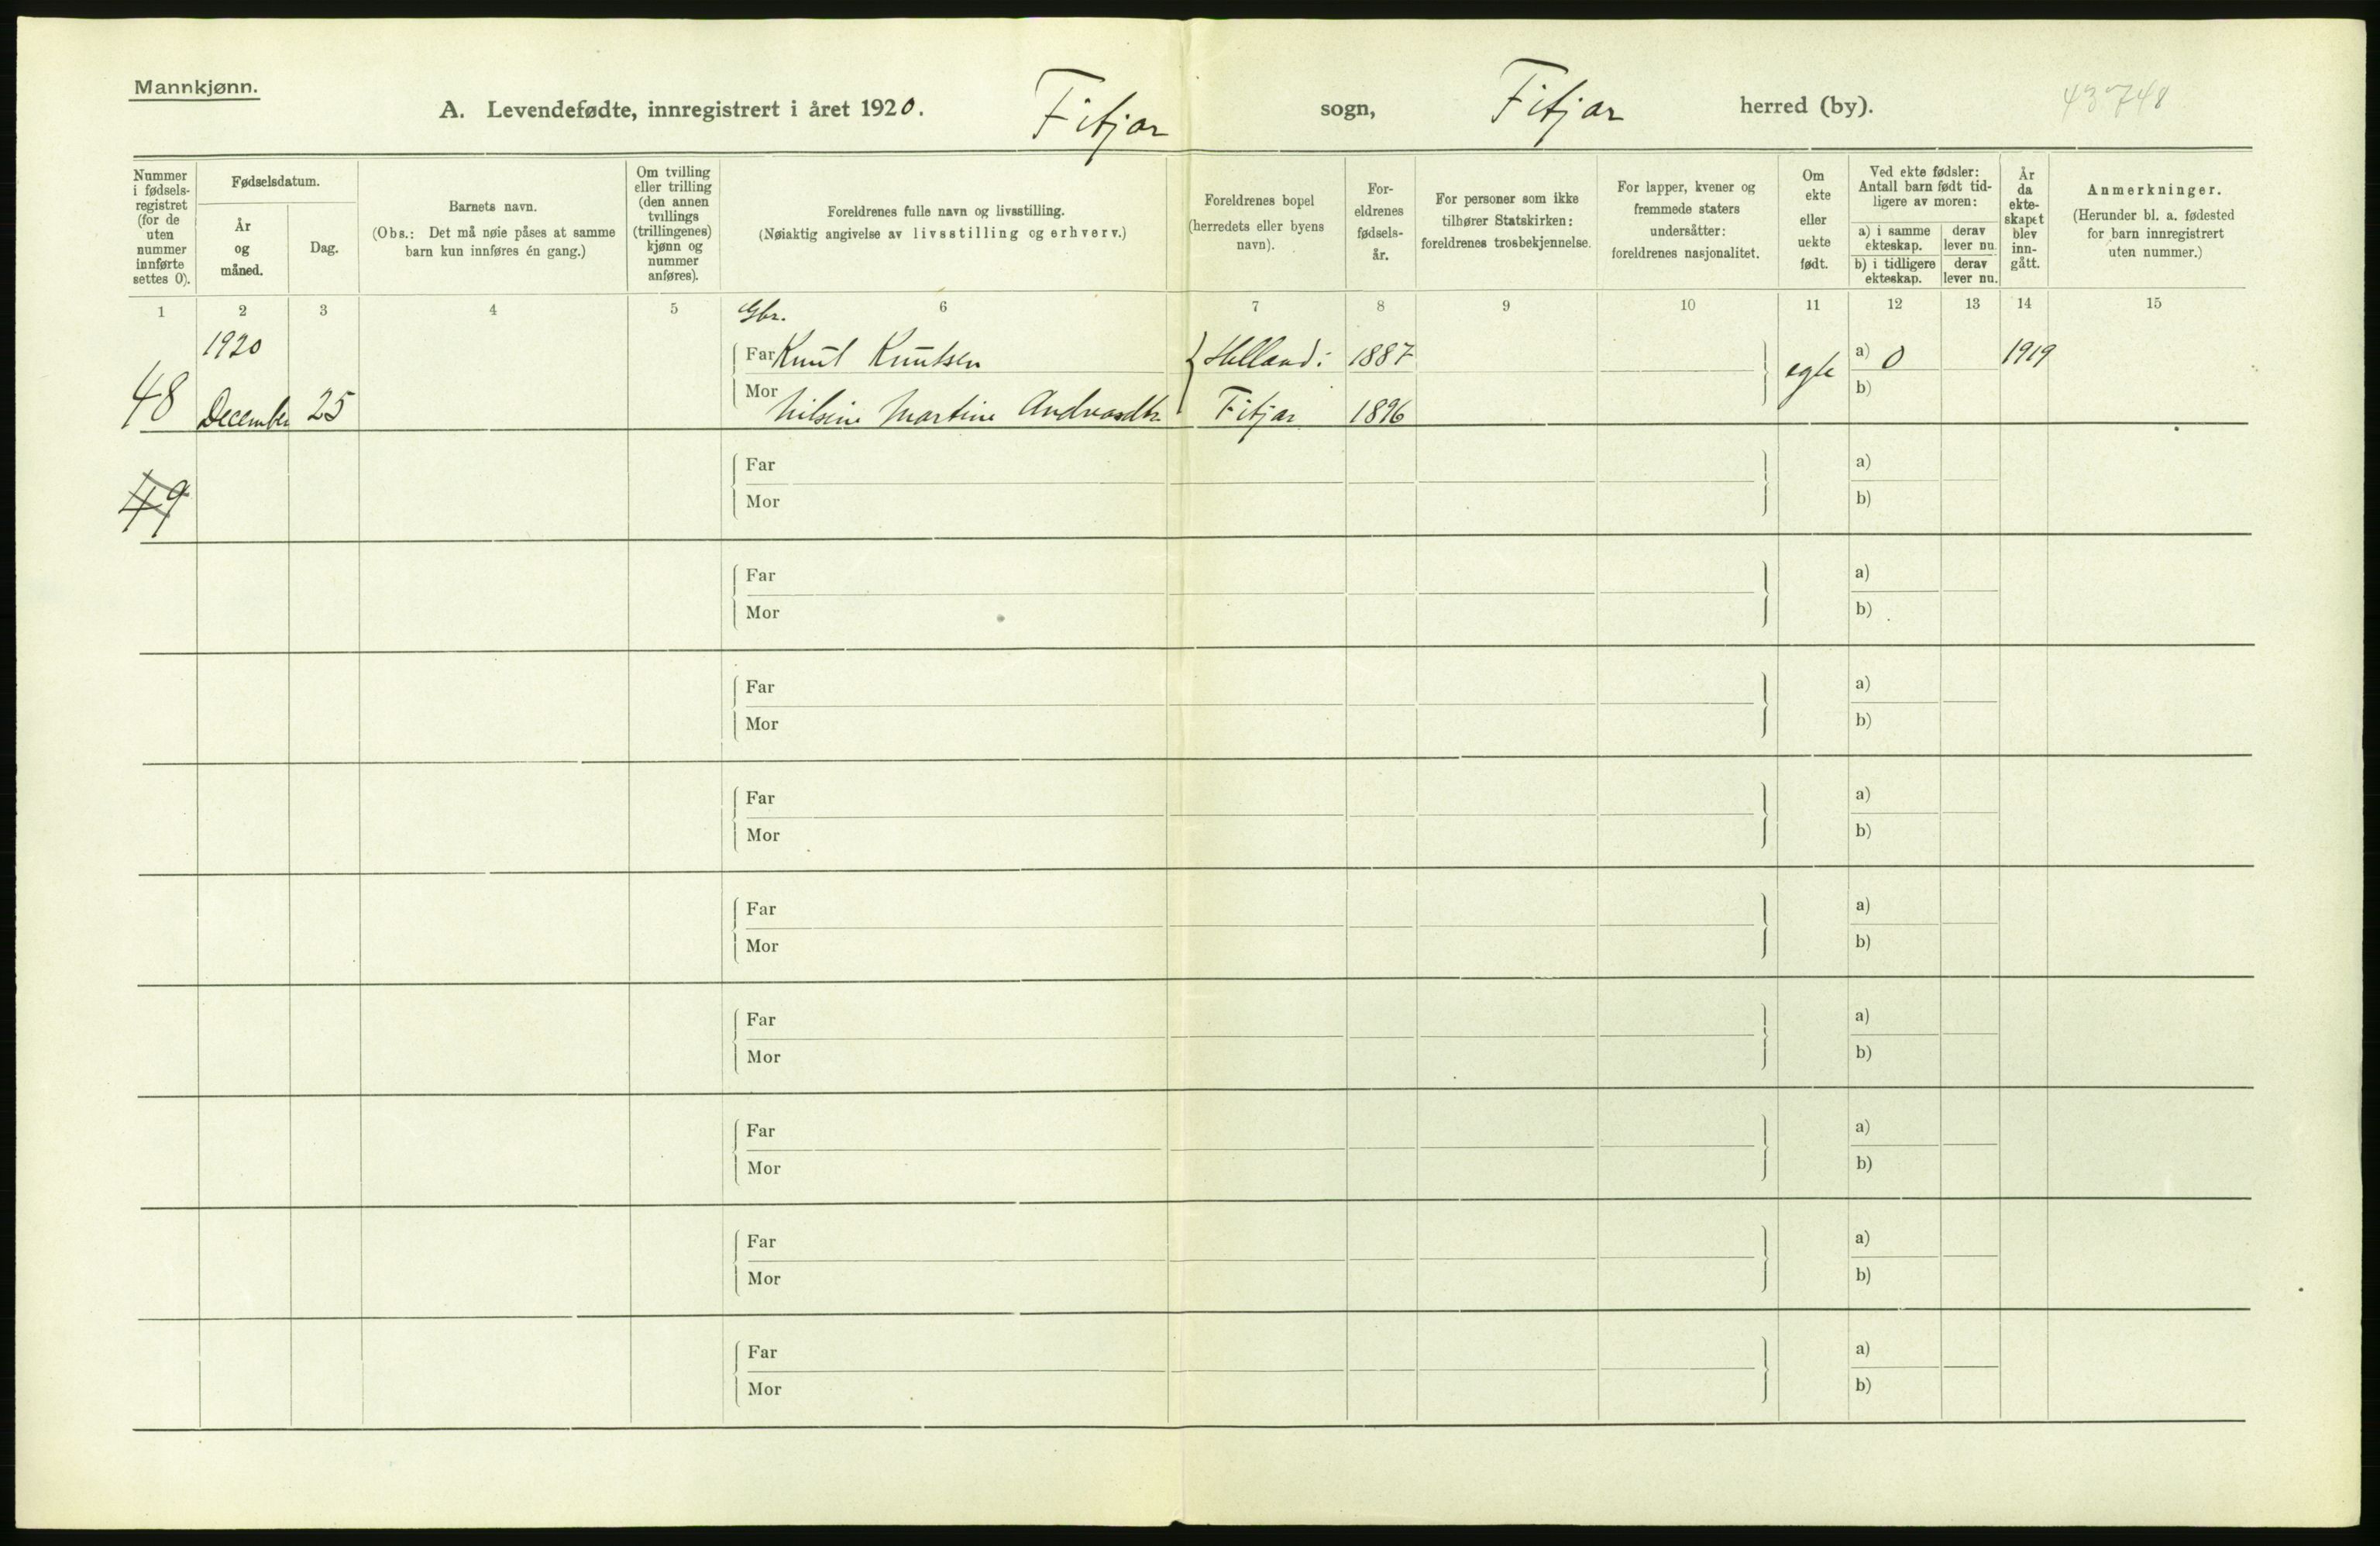 Mannkjønn.
A. Levendefødte, innregistrert i året 1920. Fitjar sogn, Fitjar herred (by). 43748
Nummer i fødsels- registret (for de uten nummer innførte settes 0).
Fødselsdatum.
År og måned.
Dag.
Barnets navn.
(Obs.: Det må nøie påses at samme barn kun innføres én gang.)
Om tvilling eller trilling (den annen tvillings (trillingenes) kjønn og nummer anføres).
Foreldrenes fulle navn og livsstilling.
(Nøiaktig angivelse av livsstilling og erhverv.)
Foreldrenes bopel
(herredets eller byens navn).
For- eldrenes fødsels- år.
For personer som ikke tilhører Statskirken: foreldrenes trosbekjennelse.
For lapper, kvener og fremmede staters undersåtter: foreldrenes nasjonalitet.
Om ekte eller uekte født.
Ved ekte fødsler: Antall barn født tid- ligere av moren:
a) i samme ekteskap.
derav lever nu.
b) i tidligere ekteskap.
derav lever nu.
År da ekte- skapet blev inn- gått.
Anmerkninger.
(Herunder bl. a. fødested for barn innregistrert uten nummer.)
1 2 3 4 5 6 7 8 9 10 11 12 13 14 15
Gbr.
1920 Far Knut Knutsen Helland i 1887 a) 0 1919
48 December 25 Mor Nilsine Martine Fitjar 1896 egte b)
49 Far a)
Mor b)
Far a)
Mor b)
Far a)
Mor b)
Far a)
Mor b)
Far a)
Mor b)
Far a)
Mor b)
Far a)
Mor b)
Far a)
Mor b)
Far a)
Mor b)